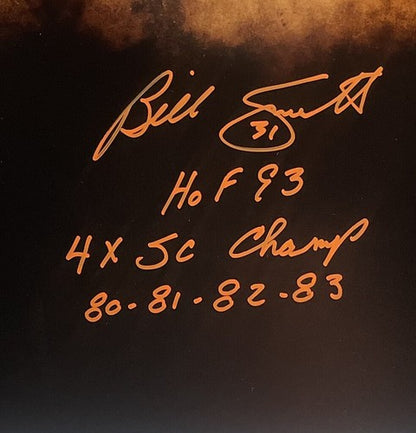 Bill Smith
31
HoF 93
4 X SC Champ
80-81-82-83